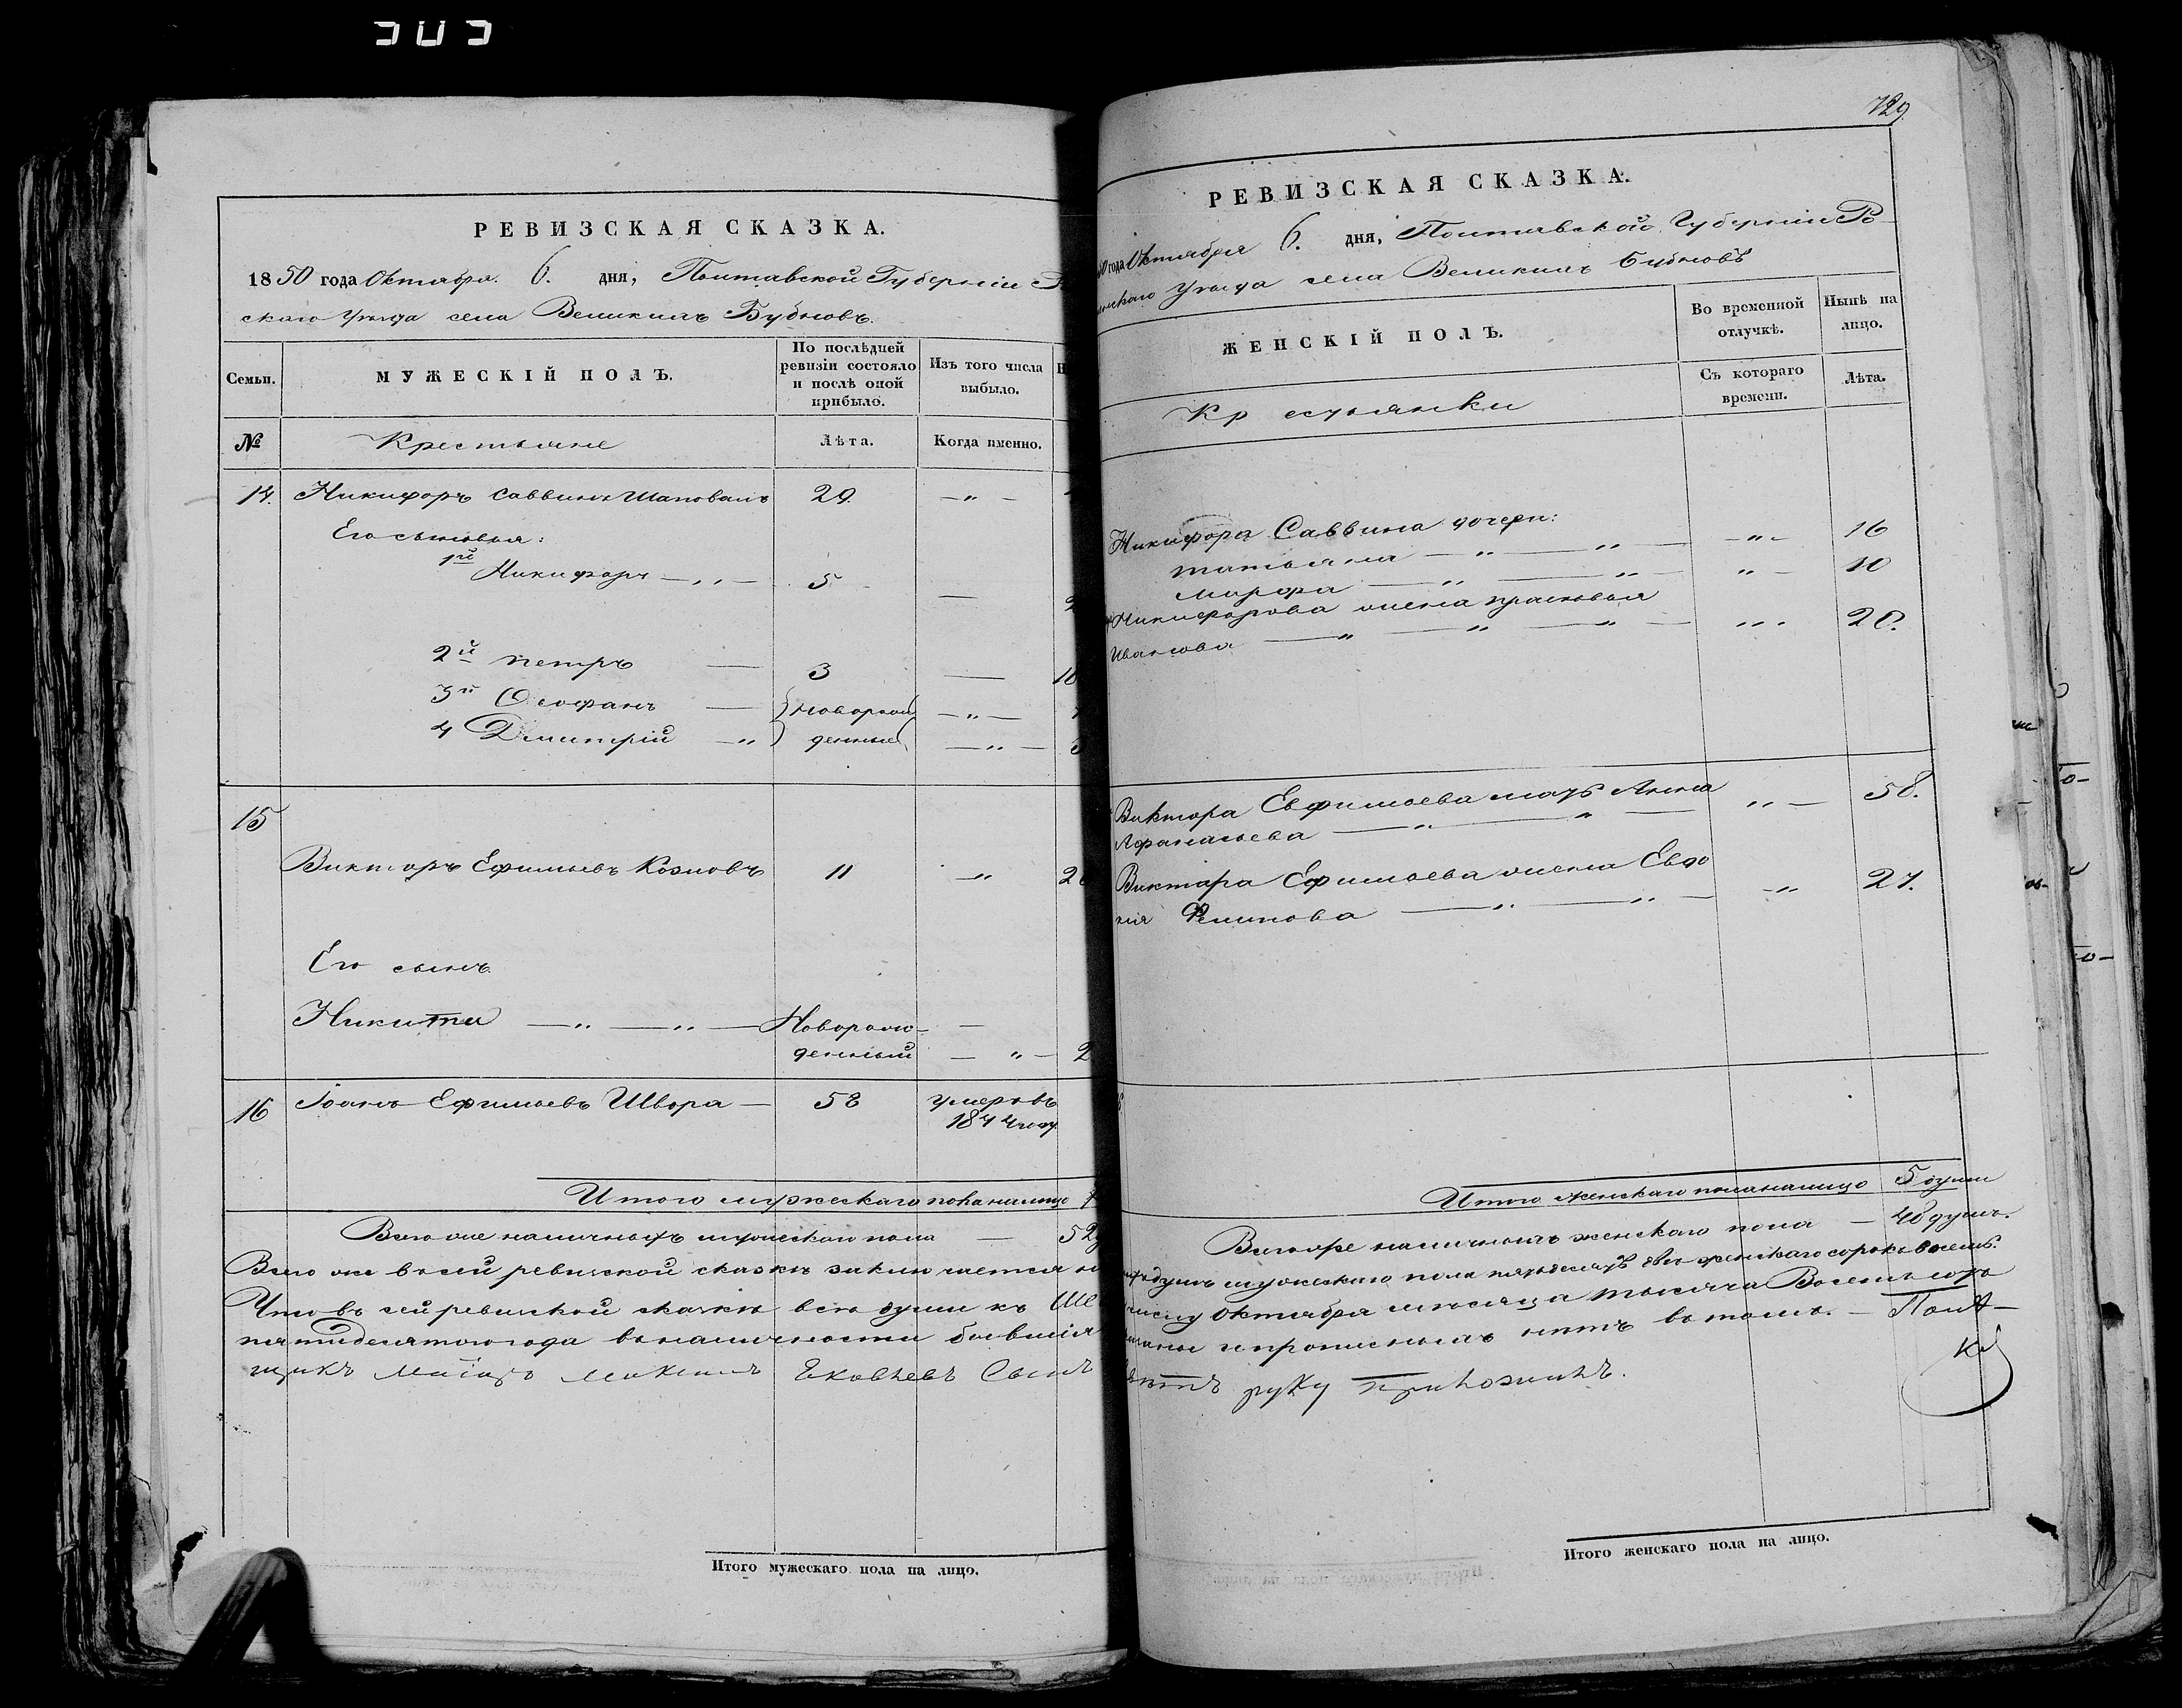 303
РЕВИЗСКАЯ СКАЗКА.
1850 года Октября. 6. дня, Полтавской Губерніи
скаго Уѣзда села Великихъ Бубновъ.
Семьи.
МУЖЕСКІЙ ПОЛЪ.
По послѣдней
ревизіи состояло
и послѣ оной
прибыло.
Изъ того числа
выбыло.
№
Крестьяне
Лѣта.
Когда именно.
14. Никифоръ Саввинъ Шаповалъ 29. — „ —
Его сыновья:
1й Никифоръ — „ — 5 —
2й Петръ — 3 — 18
3й Ѳеофанъ — новорож
4 Дмитрій — „ денные — „ —
15
Викторъ Ефимьевъ Козловъ 11 — „
Его сынъ
Никита — „ — „ — Новорож- —
денный — „ — 2
16 Іоанъ Ефимьевъ Швора — 58 умеръ въ
1844 году
Итого мужескаго пола налицо
Всего же наличныхъ мужескаго пола — 52
Всего же въ сей ревизской сказкѣ заключается
Что въ сей ревизской сказкѣ всѣ души къ
пятидесятого года въ наличности бывшія
щикъ Маіоръ Яковлевъ Сынъ
Итого мужескаго пола на лицо.
729
РЕВИЗСКАЯ СКАЗКА.
года Октября 6. дня, Полтавской Губерніи Ро-
менскаго Уѣзда села Великихъ Бубновъ
ЖЕНСКІЙ ПОЛЪ.
Во временной
отлучкѣ.
Нынѣ на
лицо.
Съ котораго
времени.
Лѣта.
Кр естьянки
Никифора Саввина дочери:
татьяна — „ — „ — — „ — 16
Марфа — „ — „ — „ — 10
Никифорова жена прасковья
Иванова — „ — „ — „ — „ „ 20.
Виктора Евфимьева мать Анна
Афанасьева — „ — „ — „ — 58.
Виктора Ефимьева жена Евдо
кія Филипова — „ — „ — — „ 27.
Итого женскаго пола налицо 5 души
Всего же наличныхъ женскаго пола — 48 душъ.
душъ мужескаго пола пятьдесятъ два женскаго сорокъ восемь.
числу Октября мѣсяца тысяча Восемь сотъ
и прописныхъ нѣтъ въ томъ. —
руку приложилъ.
Итого женскаго пола на лицо.